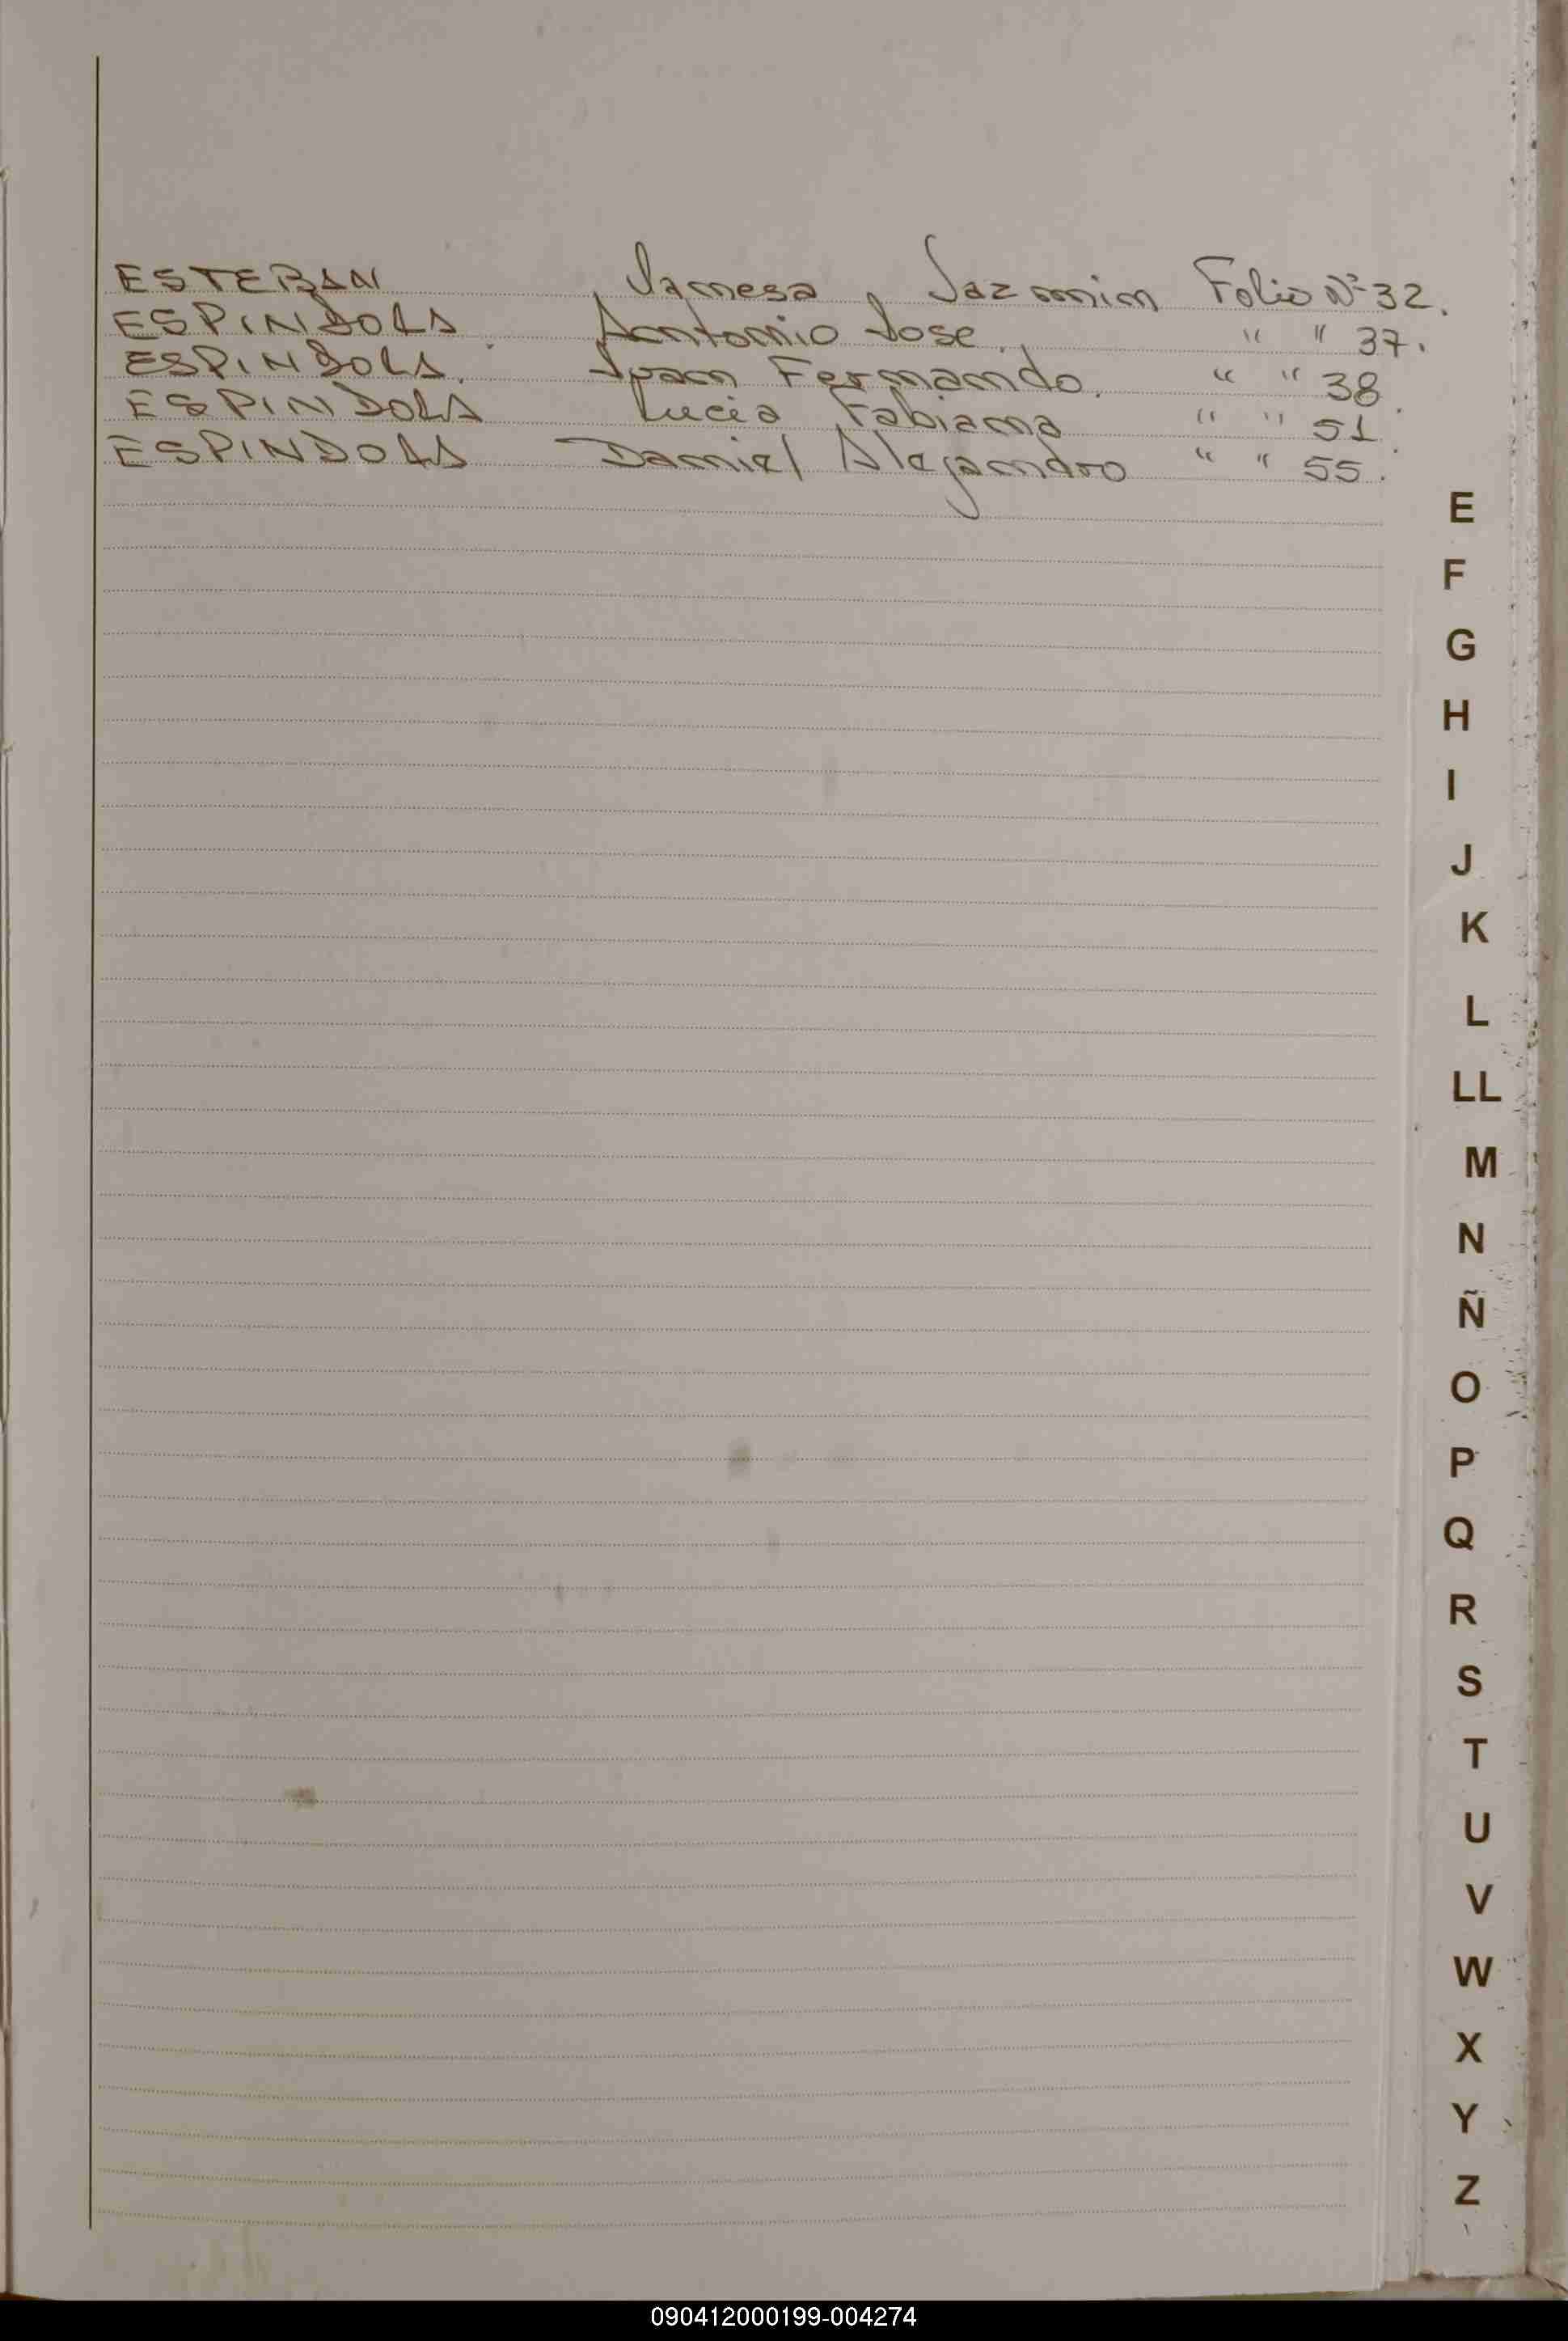 ESTEBAN Vanesa Jazmin Folio Nº 32.
ESPINDOLA Antonio Jose. " " 37.
ESPINDOLA. Ivan Fernando. " " 38
ESPINDOLA Lucia Fabiana " " 51.
ESPINDOLA Daniel Alejandro " " 55.
E
F
G
H
I
J
K
L
LL
M
N
Ñ
O
P
Q
R
S
T
U
V
W
X
Y
Z
090412000199-004274